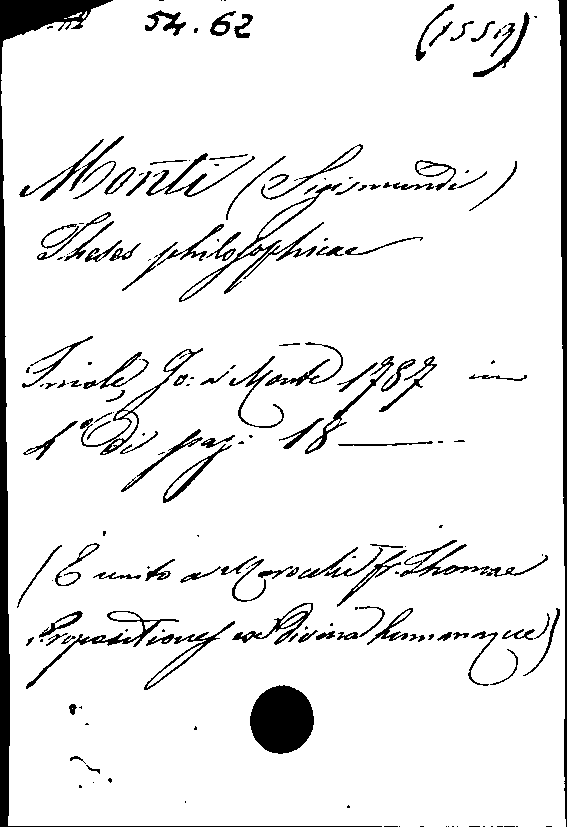 54.62 (1559)
Monti (Sigismundi)
Theses philosophicae
Imolae, Jo: a Monte 1787 in
4° di pag: 18
(È unito a Marochi fr. Thomae
Propositiones ex Divina humanaque)